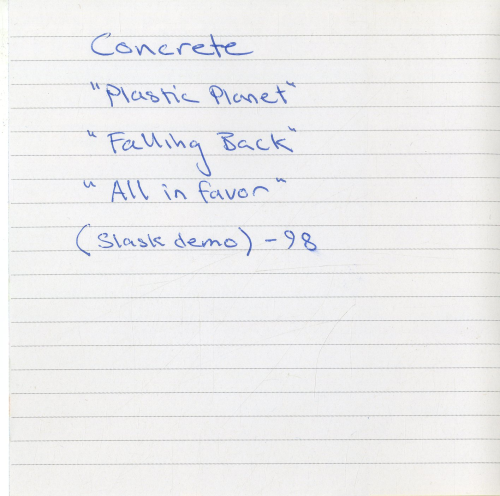 Concrete
"Plastic Planet"
"Falling Back"
"All in favor"
(Slask demo) - 98